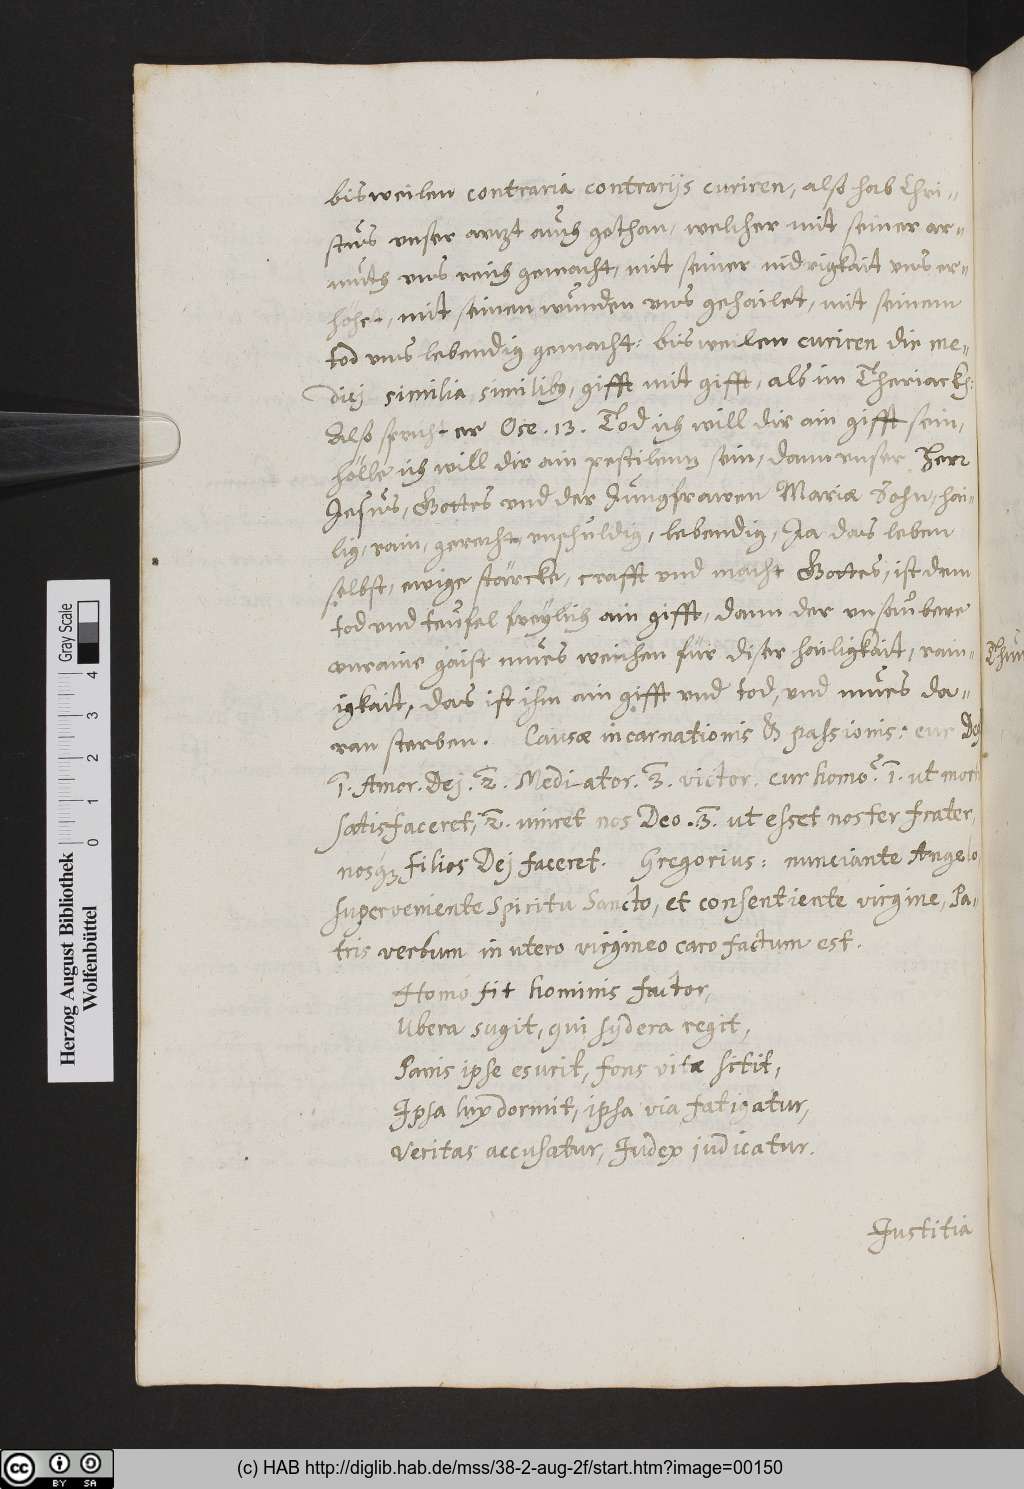 bisweilen contraria contrarijs curiren, also hab Chri-
stus unser artzt auch gethan, welcher mit seiner ar-
muth uns reich gemacht, mit seiner nidrigkait uns er-
höhet, mit seinen wunden uns gehailet, mit seinem
tod uns lebendig gemacht: bisweilen curiren die me-
dicj similia similibus, gifft mit gifft, als im Theriackh:
Also spricht er Ose. 13. Tod ich will dir ain gifft sein,
hölle ich will dir ain pestilentz sein, dann unser Herr
Jesus, Gottes und der Jungfrawen Mariæ Sohn, hai-
lig, rain, gerecht, unschuldig, lebendig, Ja das leben
selbst, ewige stärcke, crafft und macht Gottes, ist dem
tod und teufel freylich ain gifft, dann der unsaubere
unraine gaist mues weichen für diser hailigkait, rain-
igkait, das ist ihm ain gifft und tod, und mues da-
ran sterben. Causæ incarnationis & passionis: cur Deus
1. Amor. Dej. 2. Mediator. 3. victor. cur homo? 1. ut morti
satisfaceret, 2. uniret nos Deo. 3. ut esset noster frater,
nosq3 filios Dej faceret. Gregorius: nunciante Angelo
superveniente Spiritu Sancto, et consentiente virgine, Pa-
tris verbum in utero virgineo caro factum est.
Homo fit hominis factor,
Ubera sugit, qui sydera regit,
Panis ipse esurit, fons vitæ sitit,
Ipsa lux dormit, ipsa via fatigatur,
Veritas accusatur, Judex judicatur.
Justitia
Herzog August Bibliothek
Wolfenbüttel
0 1 2 3 4
Gray Scale
cc BY SA
(c) HAB http://diglib.hab.de/mss/38-2-aug-2f/start.htm?image=00150